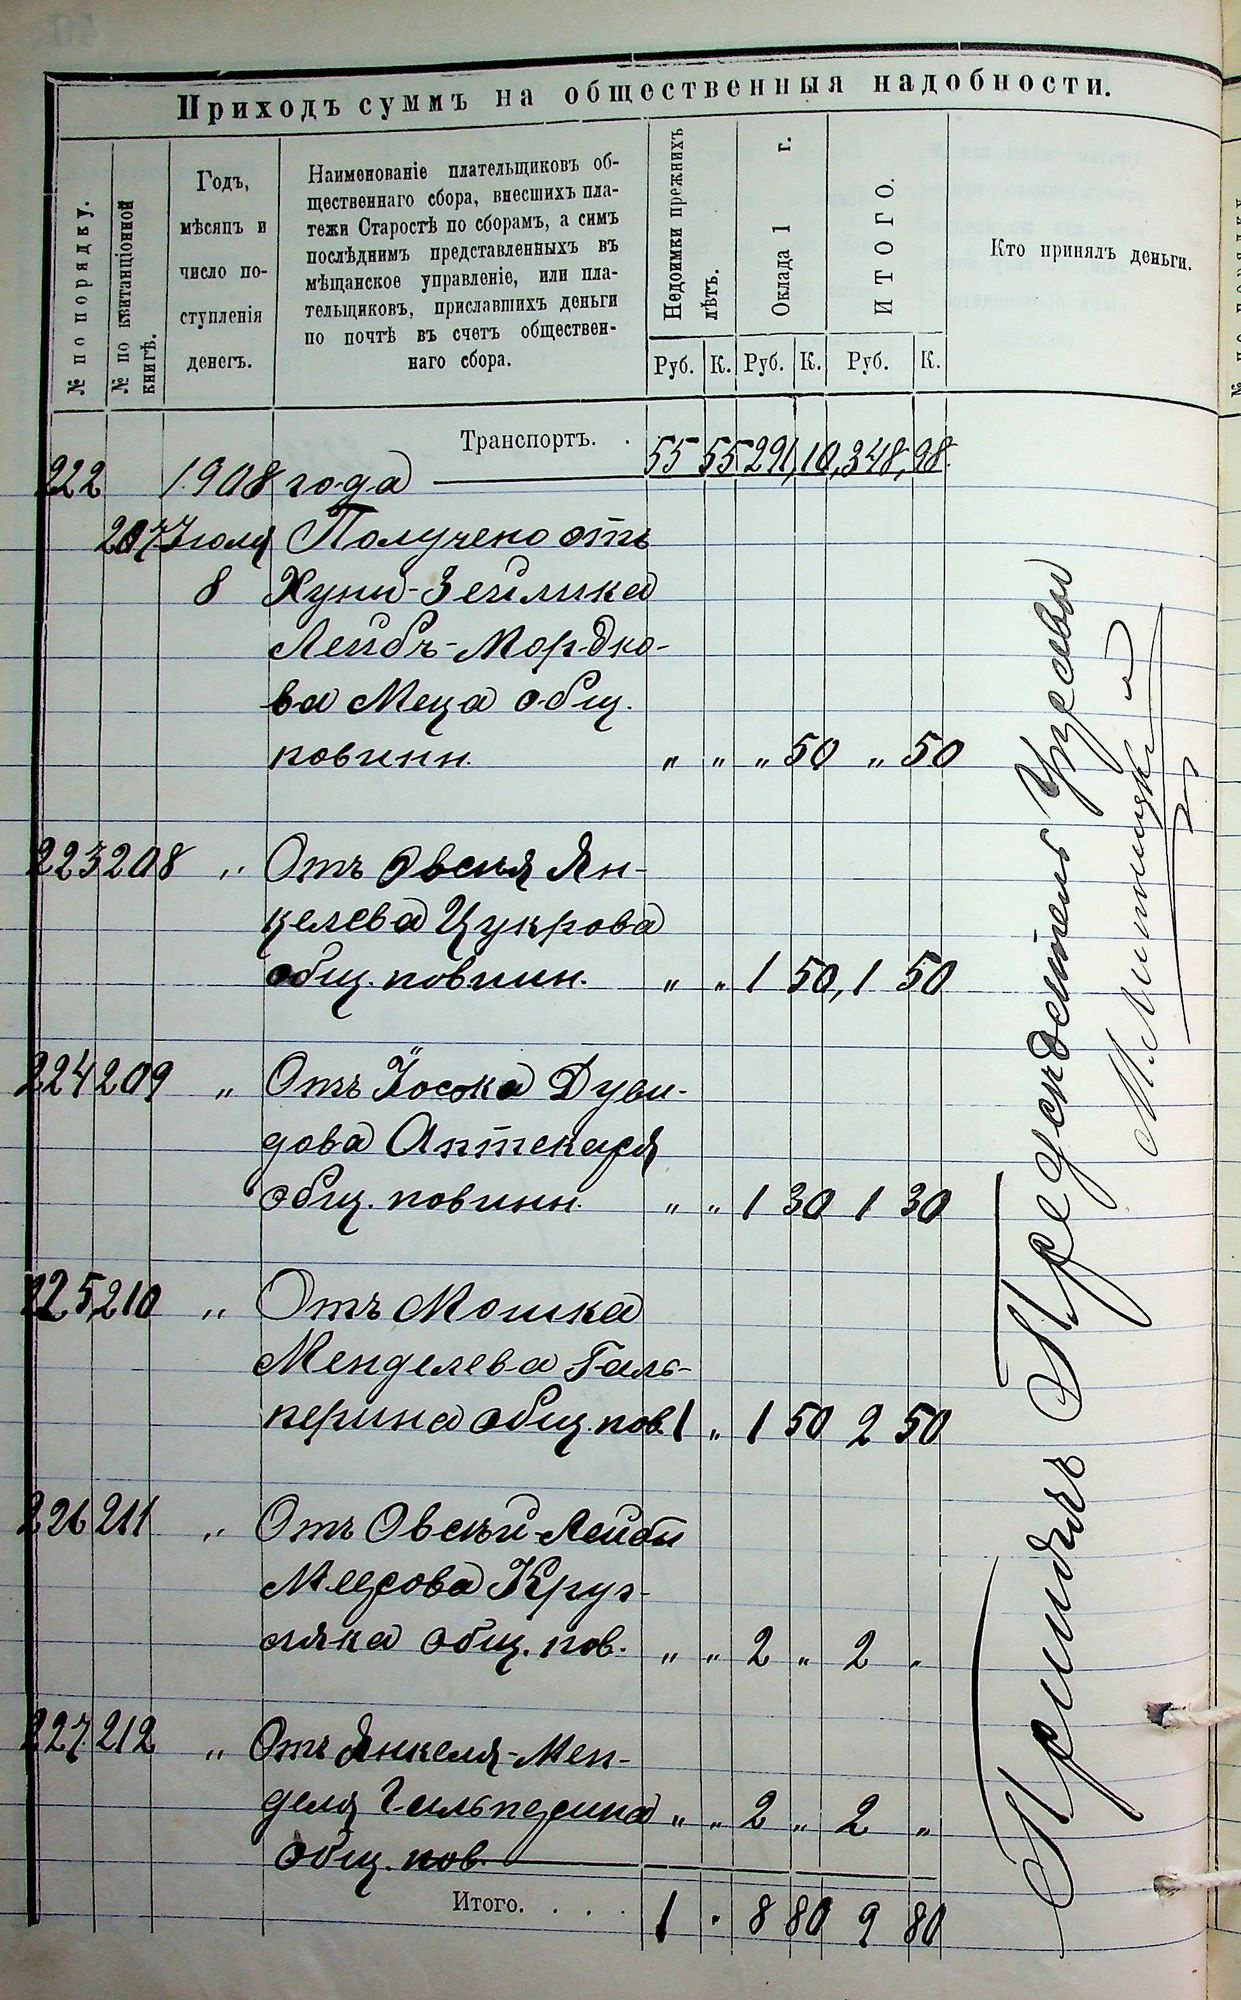 Приходъ суммъ на общественныя надобности.
№ по порядку.
№ по квитанціонной
книгѣ.
Годъ,
мѣсяцъ и
число по-
ступленія
денегъ.
Наименованіе плательщиковъ об-
щественнаго сбора, внесшихъ пла-
тежи Старостѣ по сборамъ, а симъ
послѣднимъ представленныхъ въ
мѣщанское управленіе, или пла-
тельщиковъ, приславшихъ деньги
по почтѣ въ счетъ обществен-
наго сбора.
Недоимки прежнихъ
лѣтъ.
Оклада 1 г.
ИТОГО.
Кто принялъ деньги.
Руб. К. Руб. К. Руб. К.
Транспортъ. . 55 55 291 10 348 98
222 1908 года
207 Іюля Получено отъ
8 Хуны-Зейлика
Лейбъ-Мордко-
ва Меца общ.
повинн. " " " 50 " 50
223 208 " Отъ Овсея Ян-
келева Цукрова
общ. повинн. " " 1 50 1 50
224 209 " Отъ Іоська Дуви-
дова Аптекаря
общ. повинн. " " 1 30 1 30
225 210 " Отъ Мошка
Менделева Галь-
перина общ. пов. 1 " 1 50 2 50
226 211 " Отъ Овсѣй-Лейбы
Меерова Круг-
ляка общ. пов. " " 2 " 2 "
227 212 " Отъ Янкеля-Мен-
деля Гальперина " " 2 " 2 "
общ. пов.
Итого. . . . . 1 " 8 80 9 80
Принялъ Предсѣдатель Управы